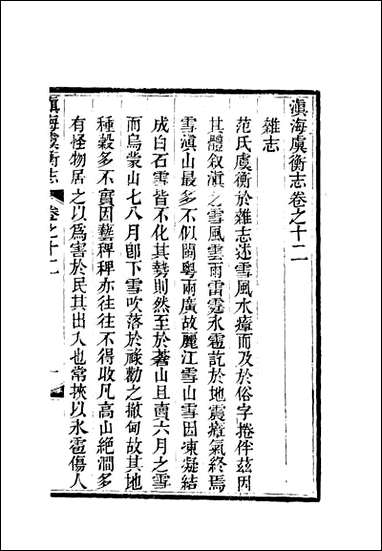 滇海虞衡志卷之十二
雜志
范氏虞衡於雜志述雪風水瘴而及於俗字捲伴茲因
其體叙滇之雪風雲雨雷霆氷雹訖於地震瘴氣終焉
雪滇山最多不似閩粵兩廣故麗江雪山雪因凍凝結
成白石雪皆不化其勢則然至於蒼山且賣六月之雪
而烏蒙山七八月卽下雪吹落於祿勸之撤甸故其地
種穀多不實因藝稗稗亦往往不得收凡高山絕澗多
有怪物居之以爲害於民其出入也常挾以氷雹傷人
滇海虞衡志
卷之十二
一